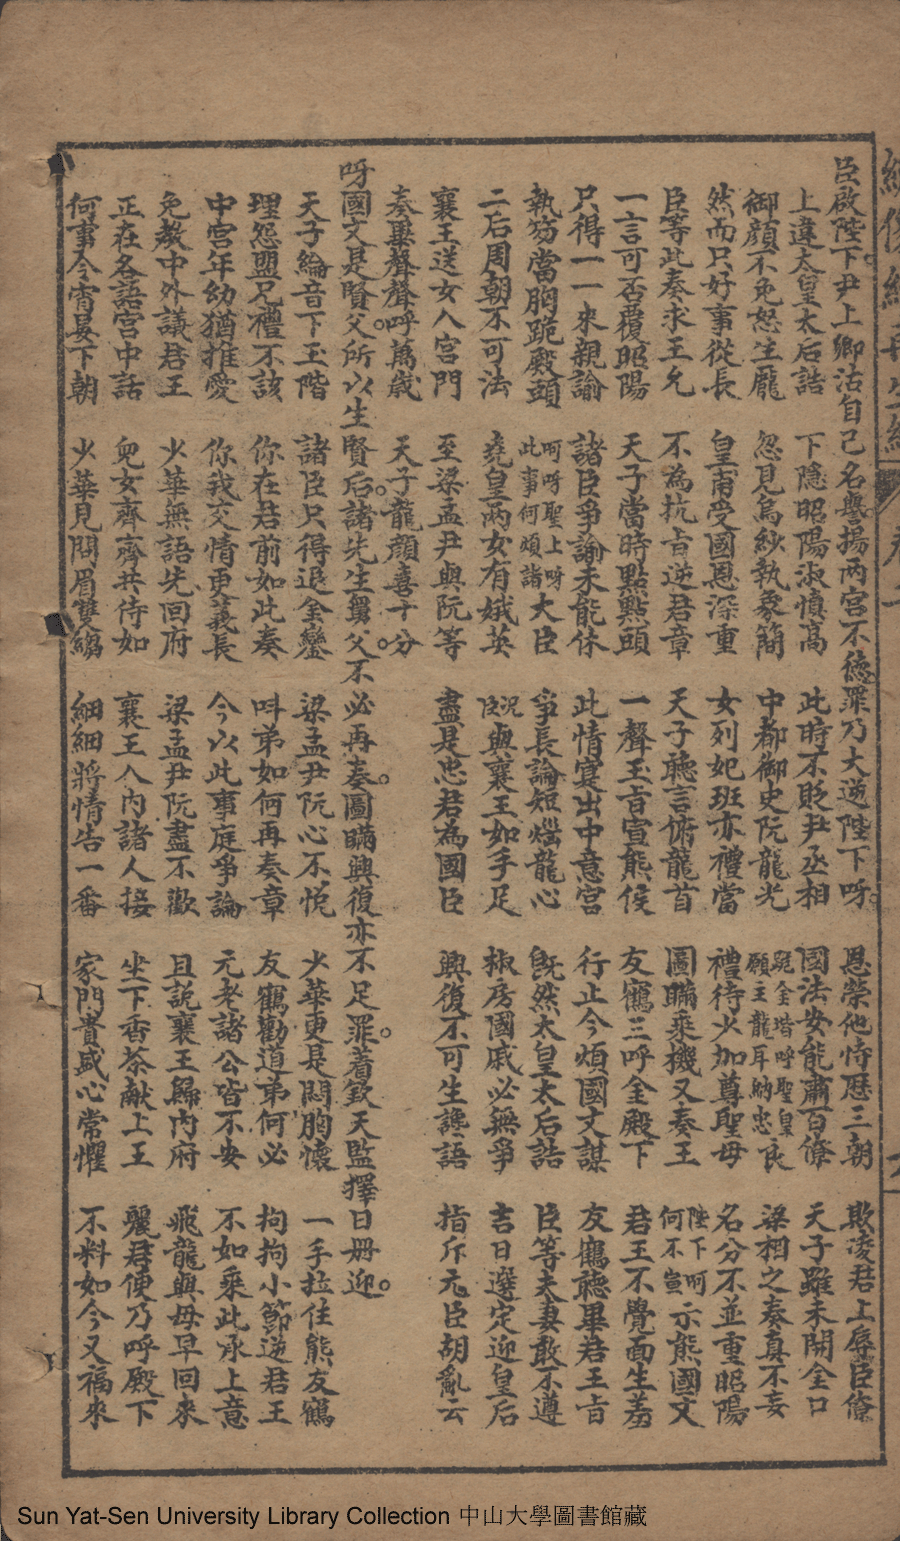 臣啟陛下。尹上卿沽自己名譽揚兩宮不德。罪乃大逆陛下呀。恩榮他恃歷三朝 欺凌君上辱臣僚
上違太皇太后誥 下隱昭陽淑慎高 此時不貶尹丞相 國法安能肅百僚 天子雖未開金口
御顏不免怒生龎 忽見烏紗執象簡 中都御史阮龍光 跪金堦呼聖皇願主龍耳納忠良 梁相之奏真不妄
然而只好事從長 皇甫受國恩深重 女列妃班亦禮當 禮待少加尊聖母 名分不並重昭陽
臣等此奏求王允 不為抗旨逆君章 天子聽言俯龍首 圖瞞乘機又奏王 陛下呵何不宣示熊國丈
一言可否覆昭陽 天子當時點點頭 一聲玉旨宣熊侯 友鶴三呼金殿下 君王不覺面生羞
只得一一來親諭 諸臣爭論未能休 此情寔出中意宮 行止今煩國丈謀 友鶴聽畢君王旨
執笏當胸跪殿頭 呵呀聖上呀此事何煩諧大臣 爭長論短惱龍心 既然太皇太后誥 臣等夫妻敢不遵
二后周朝不可法 堯皇兩女有娥英 況臣與襄王如手足 椒房國戚必無爭 吉日選定迎皇后
襄王送女入宮門 至梁孟尹與阮等 盡是忠君為國臣 興復不可生讒語 指斥元臣胡亂云
奏畢聲聲呼萬歲 天子龍顏喜十分
呀國丈是賢父。所以生賢后。諸先生舅父。不必再奏。圖瞞興復亦不足罪。着欽天監擇日冊迎。
天子綸音下玉階 諸臣只得退金鑾 梁孟尹阮心不悅 少華更是悶胸懷 一手拉住熊友鶴
理怨盟兄禮不該 你在君前如此奏 呌弟如何再奏章 友鶴勸道弟何必 拘拘小節逆君王
中宮年幼猶推愛 你我交情更義長 今以此事庭爭論 元老諸公皆不安 不如乘此承上意
免教中外議君王 少華無語先回府 梁孟尹阮盡不歡 且説襄王歸內府 飛龍與母早回來
正在各語宮中話 兒女齊齊共待如 襄王入內諸人接 坐下香茶献上王 麗君便乃呼殿下
何事今宵晏下朝 少華見問眉雙縐 細細將情告一番 家門貴盛心常懼 不料如今又福來
Sun Yat-Sen University Library Collection 中山大學圖書館藏